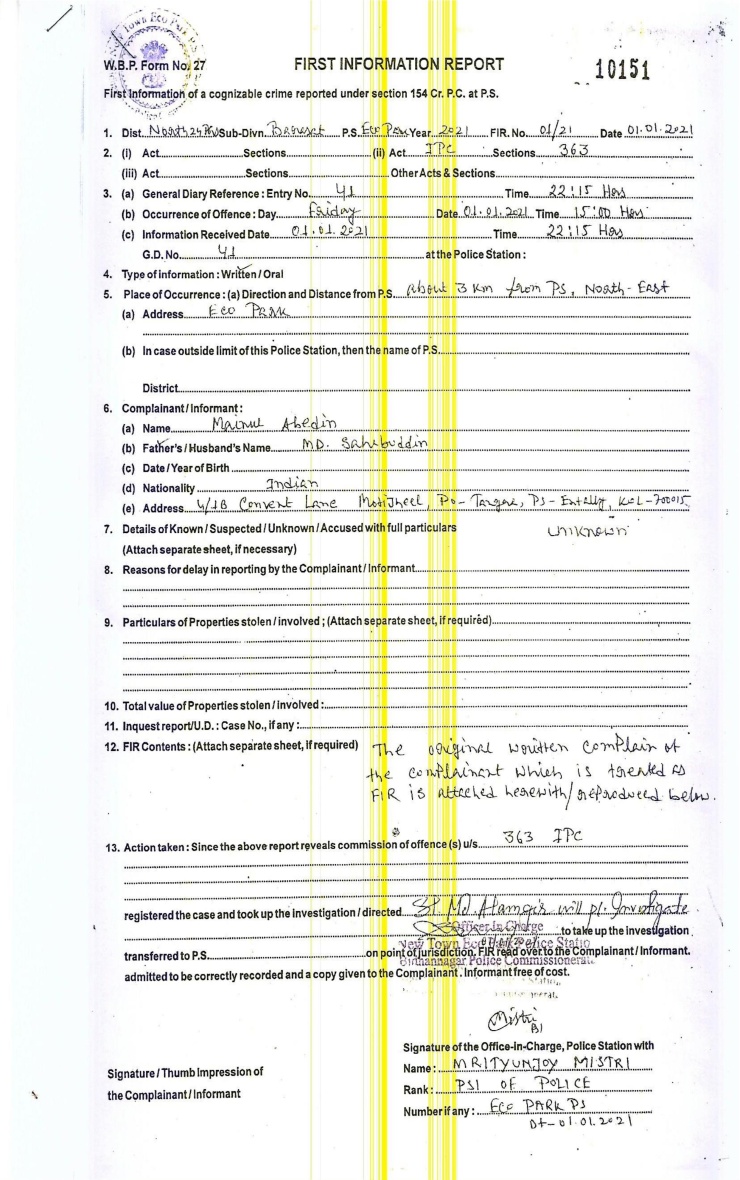 Town Eco Park P.S.
W.B.P. Form No. 27
FIRST INFORMATION REPORT
10151
First Information of a cognizable crime reported under section 154 Cr. P.C. at P.S.
1. Dist. North 24 Sub-Divn. Barasat P.S. Eco Park Year 2021 FIR. No. 01/21 Date 01.01.2021
2. (i) Act Sections (ii) Act IPC Sections 363
(iii) Act Sections Other Acts & Sections
3. (a) General Diary Reference : Entry No. 41 Time 22:15 Hrs
(b) Occurrence of Offence : Day Friday Date 01.01.2021 Time 15:00 Hrs
(c) Information Received Date 01.01.2021 Time 22:15 Hrs
G.D. No. 41 at the Police Station :
4. Type of information : Written / Oral
5. Place of Occurrence : (a) Direction and Distance from P.S. About 3 Km from PS, North-East
(a) Address Eco Park
(b) In case outside limit of this Police Station, then the name of P.S.
District
6. Complainant / Informant :
(a) Name Mainul Abedin
(b) Father's / Husband's Name MD. Sahabuddin
(c) Date / Year of Birth
(d) Nationality Indian
(e) Address 4/1B Convent Lane Motijheel, Po- Tangra, PS- Entally, Kol-700015
7. Details of Known / Suspected / Unknown / Accused with full particulars Unknown
(Attach separate sheet, if necessary)
8. Reasons for delay in reporting by the Complainant / Informant
9. Particulars of Properties stolen / involved ; (Attach separate sheet, if required)
10. Total value of Properties stolen / involved :
11. Inquest report/U.D. : Case No., if any :
12. FIR Contents : (Attach separate sheet, if required) The original written complain of
the complainant which is treated as
FIR is attached herewith/reproduced below.
13. Action taken : Since the above report reveals commission of offence (s) u/s. 363 IPC
registered the case and took up the investigation / directed SI Md Alamgir will pl. Investigate
Officer In Charge to take up the investigation
New Town Eco Park Police Station
transferred to P.S. on point of jurisdiction, FIR read over to the Complainant / Informant.
Bidhannagar Police Commissionerate
admitted to be correctly recorded and a copy given to the Complainant . Informant free of cost.
Mistri
Signature of the Office-in-Charge, Police Station with
Signature / Thumb Impression of
the Complainant / Informant
Name : MRITYUNJOY MISTRI
Rank : PSI OF POLICE
Number if any : ECO PARK PS
Dt- 01.01.2021